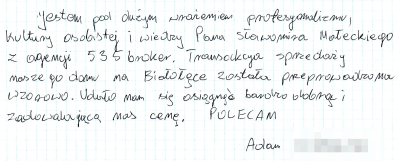 Jestem pod dużym wrażeniem profesjonalizmu,
kultury osobistej i wiedzy Pana Sławomira Małeckiego
z agencji 535 broker. Transakcja sprzedaży
naszego domu na Białołęce została przeprowadzona
wzorowo. Udało nam się osiągnąć bardzo dobrą i
zadowalającą nas cenę. POLECAM
Adam